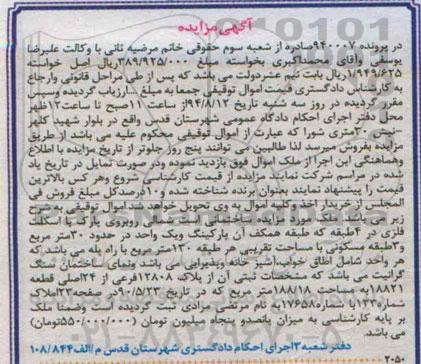 آگهی مزایده
در پرونده ۹۴۰۰۰۷صادره از شعبه سوم حقوقی خانم مرضیه ثانی با وکالت علیرضا
یوسفی وآقای محمداکبری بخواسته مبلغ ۳۸۹/۹۲۵/۰۰۰ریال اصل خواسته
۱/۹۴۹/۶۲۵ریال بابت نیم عشردولت می باشد که پس از طی مراحل قانونی وارجاع
به کارشناس دادگستری قیمت اموال توقیفی جمعا به مبلغ ---ارزیاب گردیده وسپس
مقرر گردیده در روز سه شنبه تاریخ ۹۴/۸/۱۲از ساعت ۱۱صبح تا ساعت۱۲ظهر
محل دفتر اجرای احکام دادگاه عمومی شهرستان قدس واقع در بلوار شهید کلهر
-نبش ۲۰متری شورا که عبارت از اموال توقیفی محکوم علیه می باشد از طریق
مزایده بفروش میرسد لذا طالبین می توانند پنج روز جلوتر از تاریخ مزایده با اطلاع
وهماهنگی این اجرا از ملک اموال فوق بازدید نموده ودر صورت تمایل در تاریخ یاد
شده در مراسم شرکت نمایند مزایده از قیمت کارشناسی شروع وهر کس بالاترین
قیمت را پیشنهاد نمایند بعنوان برنده شناخته شده و۱۰درصدکل مبلغ فروش فی
المجلس از خریدار اخذ وکلیه اموال به وی تحویل خواهد شد اموال توقیفی بشرح
زیر می باشد ملک مورد مزایده ساختمانی روبروی پارک با اسکلت
فلزی در ۴طبقه که طبقه همکف آن پارکینگ ویک واحد در حدود ۳۰متر مربع
و۳طبقه مسکونی با مساحت تقریبی هر طبقه ۱۳۰مترمربع با راه پله می باشد که
هر واحد شامل اطاق خواب، آشپز خانه وپذیرایی می باشد ونمای ساختمان سنگ
گرانیت می باشد که مشخصات ثبتی آن از پلاک ۱۲۸۰۸فرعی از ۲۴اصلی قطعه
۲۱۸۸به مساحت ۱۸۸/۱۸متر مربع که در تاریخ ۹۰/۵/۲۳در صفحه۲۳املاک
شماره۱۳۳با شماره۱۷۶۵۸به نام مرتضی مرادی ثبت گردیده است وضمنا ملک
بر پایه کارشناسی به میزان پانصدو پنجاه میلیون تومان (۵۵۰/۰۰۰/۰۰۰تومان)
می باشد.
دفتر شعبه۳اجرای احکام دادگستری شهرستان قدس م/الف۱۰۸/۸۴۴
۲۰۵۰